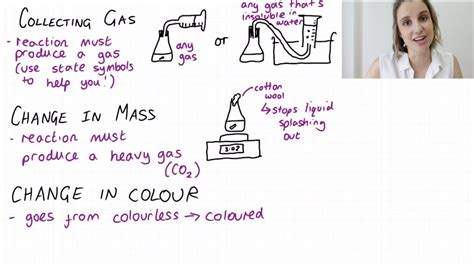 COLLECTING GAS
- reaction must
produce a gas
(use state symbols
to help you!)
any
gas
or
any gas that's
insoluble in
water
CHANGE IN MASS
- reaction must
produce a heavy gas
(CO2)
cotton
wool
↳ stops liquid
splashing
out
3.02
CHANGE IN COLOUR
- goes from colourless → coloured